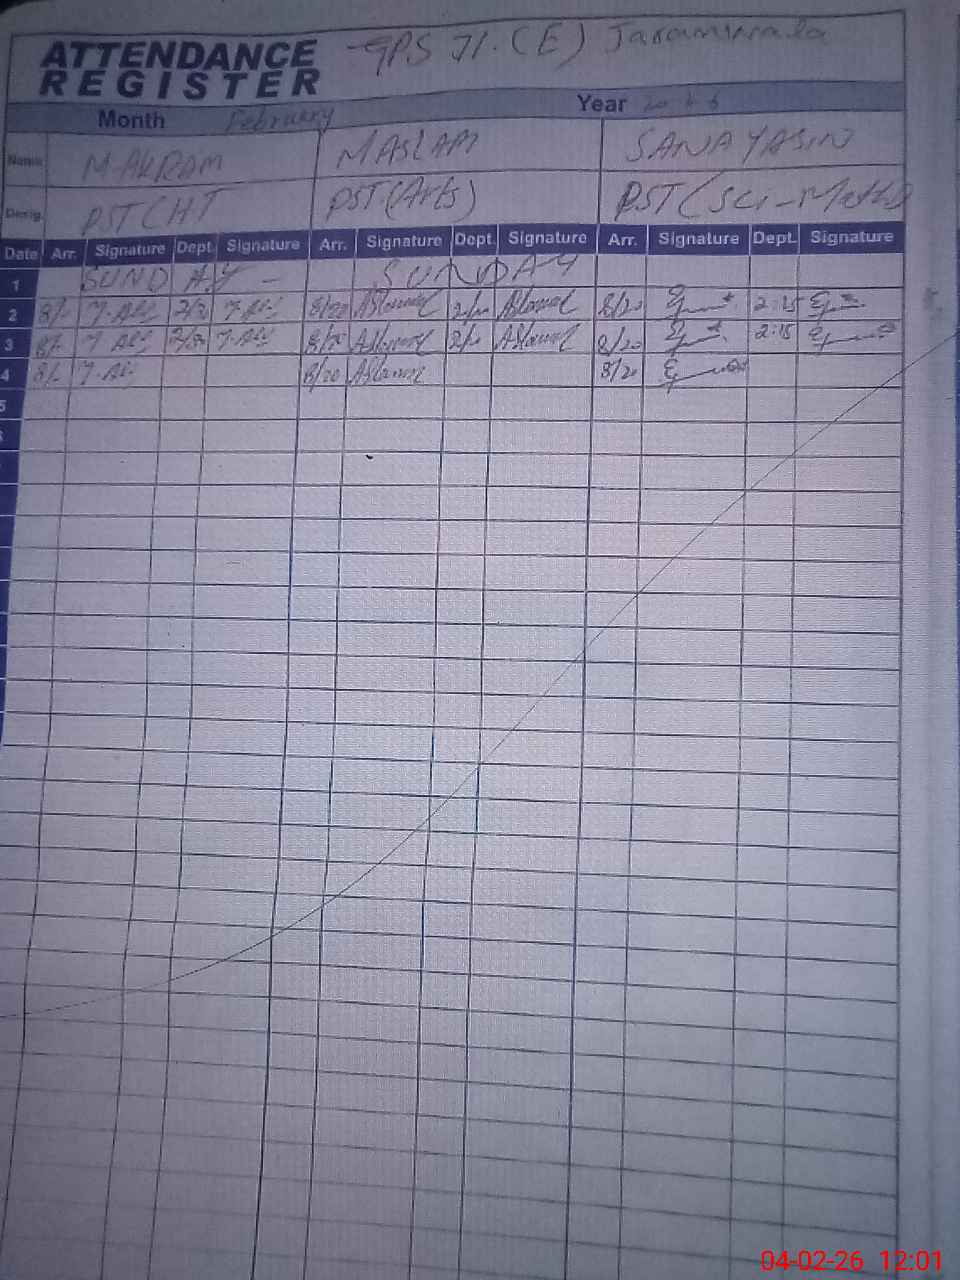 ATTENDANCE REGISTER GPS 71.(E) Jaranwala
Month February Year 2026
Name M.AKRAM M ASLAM SANA YASIN
Desig. PST(HT PST(Arts) PST(Sci-Math)
Date Arr. Signature Dept. Signature Arr. Signature Dept. Signature Arr. Signature Dept. Signature
1 SUNDAY - SUNDAY
2 8/- 8/20 Aslam 2/ Aslam 8/20 2:15
3 8/- Aslam 2/ Aslam 8/20 2:15
4 8/- 8/20 Aslam 8/20
5
04-02-26 12:01